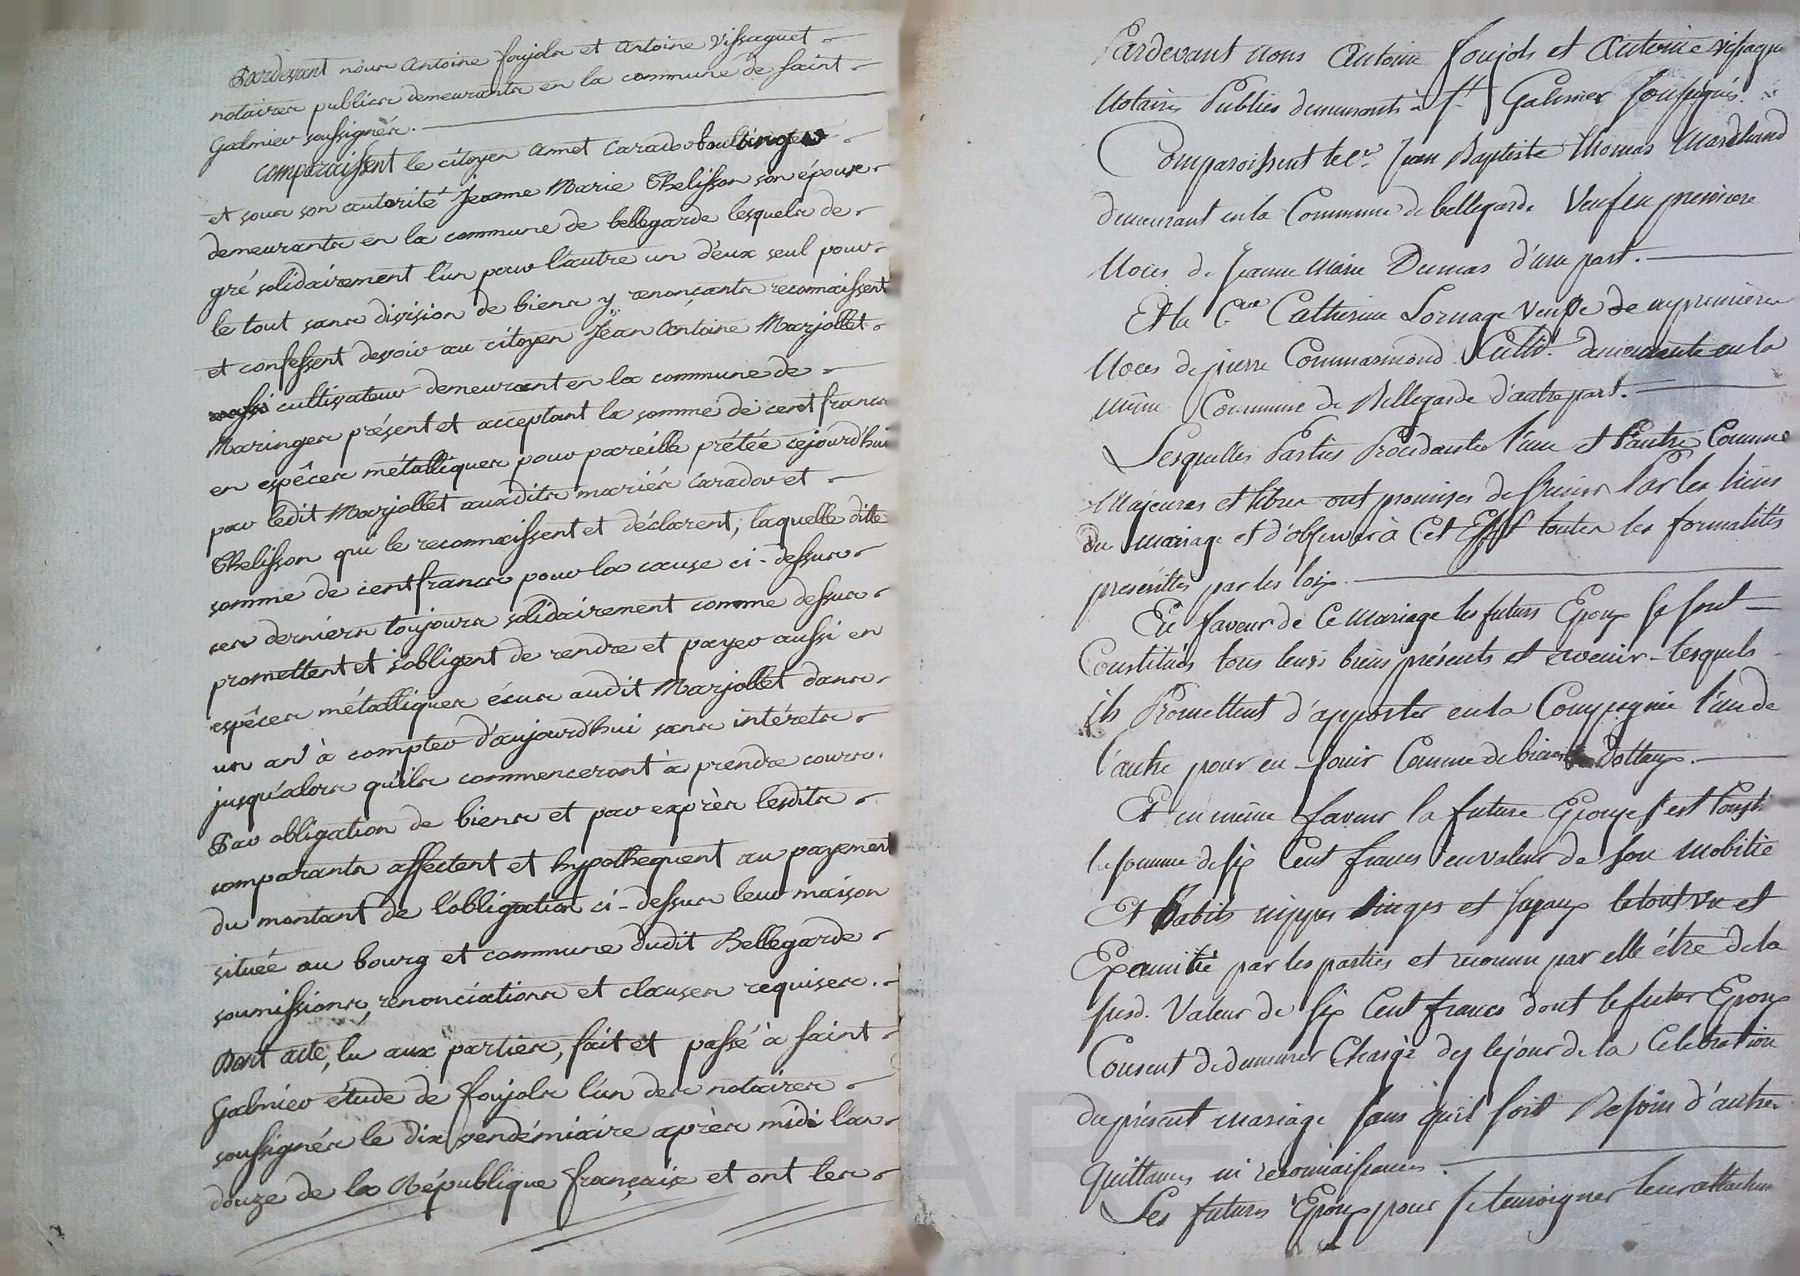 Pardevant nous Antoine foujols et Antoine Vissaguet
notaires publics demeurants en la commune de saint
Galmier soussignés.
comparaissent le citoyen Amet Carador boulanger
et sous son autorité Jeanne Marie Thelisson son épouse
demeurants en la commune de bellegarde lesquels de
gré solidairement l'un pour l'autre un d'eux seul pour
le tout sans division de biens y renonçants reconnaissent
et confessent devoir au citoyen Jean Antoine Marjollet
cultivateur demeurant en la commune de
Maringes présent et acceptant la somme de cent francs
en espèces métalliques pour pareille prêtée cejourd'hui
par ledit Marjollet auxdits mariés Carador et
Thelisson qui le reconnaissent et déclarent, laquelle ditte
somme de cent francs pour la cause ci-dessus
ces derniers toujours solidairement comme dessus
promettent et s'obligent de rendre et payer aussi en
espèces métalliques écus audit Marjollet dans
un an à compter d'aujourd'hui sans intérets
jusqu'alors qu'ils commenceront à prendre cours.
Par obligation de biens et par exprès lesdits
comparants affectent et hypothequent au payement
du montant de l'obligation ci-dessus leur maison
située au bourg et commune dudit Bellegarde
soumissions, renonciations et clauses requises.
Dont acte, lu aux parties, fait et passé à saint
Galmier étude de foujols l'un des notaires
soussignés le dix vendémiaire après midi l'an
douze de la République française et ont les
Pardevant nous Antoine foujols et Antoine vissaguet
Notaires Publics demeurants à St Galmier soussignés.
Comparoissent le Cen. Jean Baptiste Thomas Marchand
demeurant en la Commune de bellegarde Veuf en premiere
Noces de Jeanne Marie Dumas d'une part.
Et la Cne Catherine Lornage Veuve de en premieres
Noces de pierre Commarmond Cultr. demeurante en la
même Commune de Bellegarde d'autre part.
Lesquelles Parties Procédantes l'une et l'autre Comme
Majeures et libres ont promises de s'unir Par les liens
du mariage et d'observer à Cet Effet toutes les formalités
prescrittes par les loix.
En faveur de Ce Mariage les futurs Epoux se sont
Constitués tous leurs biens présents et avenir lesquels
ils Promettent d'apporter en la Compagnie l'un de
l'autre pour en Jouir Comme de biens dottaux.
Et en même faveur la future Epouse s'est Const.
la somme de six Cent francs en valeur de son mobilié
Et habits nippes linges et joyaux le tout vu et
Examiné par les parties et reconnu par elle être de la
susd. Valeur de six Cent francs dont le futur Epoux
Consent de demeurer Chargé dez le jour de la Celebration
du présent mariage sans qu'il soit Besoin d'autres
quittances ni reconnaissances.
Les futurs Epoux pour se temoigner leur attachem